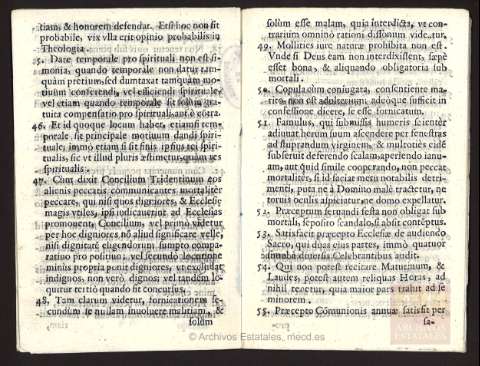 tiam, & honorem defendat. Et si hoc non sit
probabile, vix vlla erit opinio probabilis in
Theologia.
45. Dare temporale pro spirituali non est si-
monia, quando temporale non datur tam-
quam pretium, sed dumtaxat tamquam mo-
tiuum conferendi, vel efficiendi spirituale,
vel etiam quando temporale sit solum gra-
tuita compensatio pro spirituali, aut è contra.
46. Et id quoque locum habet, etiamsi tem-
porale sit principale motiuum dandi spiri-
tuale; immò etiam si sit finis ipsius rei spiri-
tualis, sic vt illud pluris æstimetur, quàm res
spiritualis.
47. Cùm dixit Concilium Tridentinum eos
alienis peccatis communicantes mortaliter
peccare, qui nisi quos digniores, & Ecclesiæ
magis vtiles, ipsi iudicauerint ad Ecclesias
promouent, Concilium, vel primò videtur
per hoc digniores nõ aliud significare velle,
nisi dignitatem eligendorum, sumpto compa-
ratiuo pro positiuo; vel secundò locutione
minùs propria ponit digniores, vt excludat
indignos, non verò dignos; vel tandem lo-
quitur tertiò quando fit concursus.
48. Tam clarum videtur, fornicationem se-
cundùm se nullam inuoluere malitiam, &
solùm
solùm esse malam, quia interdicta, vt con-
trarium omninò rationi dissonum videatur.
49. Mollities iure naturæ prohibita non est.
Vnde si Deus eam non interdixisset, sæpè
esset bona, & aliquando obligatoria sub
mortali.
50. Copula cum coniugata, consentiente ma-
rito non est adulterium, adeòque sufficit in
confessione dicere, se esse fornicatum.
51. Famulus, qui submissis humeris scienter
adiuuat herum suum ascendere per fenestras
ad stuprandum virginem, & multoties eidē
subseruit deferendo scalam, aperiendo ianu-
am, aut quid simile cooperando, non peccat
mortaliter, si id faciat metu notabilis detri-
menti, puta ne à Domino malè tractetur, ne
toruis oculis aspiciatur, ne domo expellatur.
52. Præceptum seruandi festa non obligat sub
mortali, seposito scandalo, si absit cōtēptus.
53. Satisfacit præcepto Ecclesiæ de audiendo
Sacro, qui duas eius partes, immò quatuor
simul à diuersis Celebrantibus audit.
54. Qui non potest recitare Matutinum, &
Laudes, potest autem reliquas Horas, ad
nihil tenetur, quia maior pars trahit ad se
minorem.
55. Præcepto Cōmunionis annuæ satisfit per
sa-
© Archivos Estatales, mecd.es
ARCHIVOS
ESTATALES